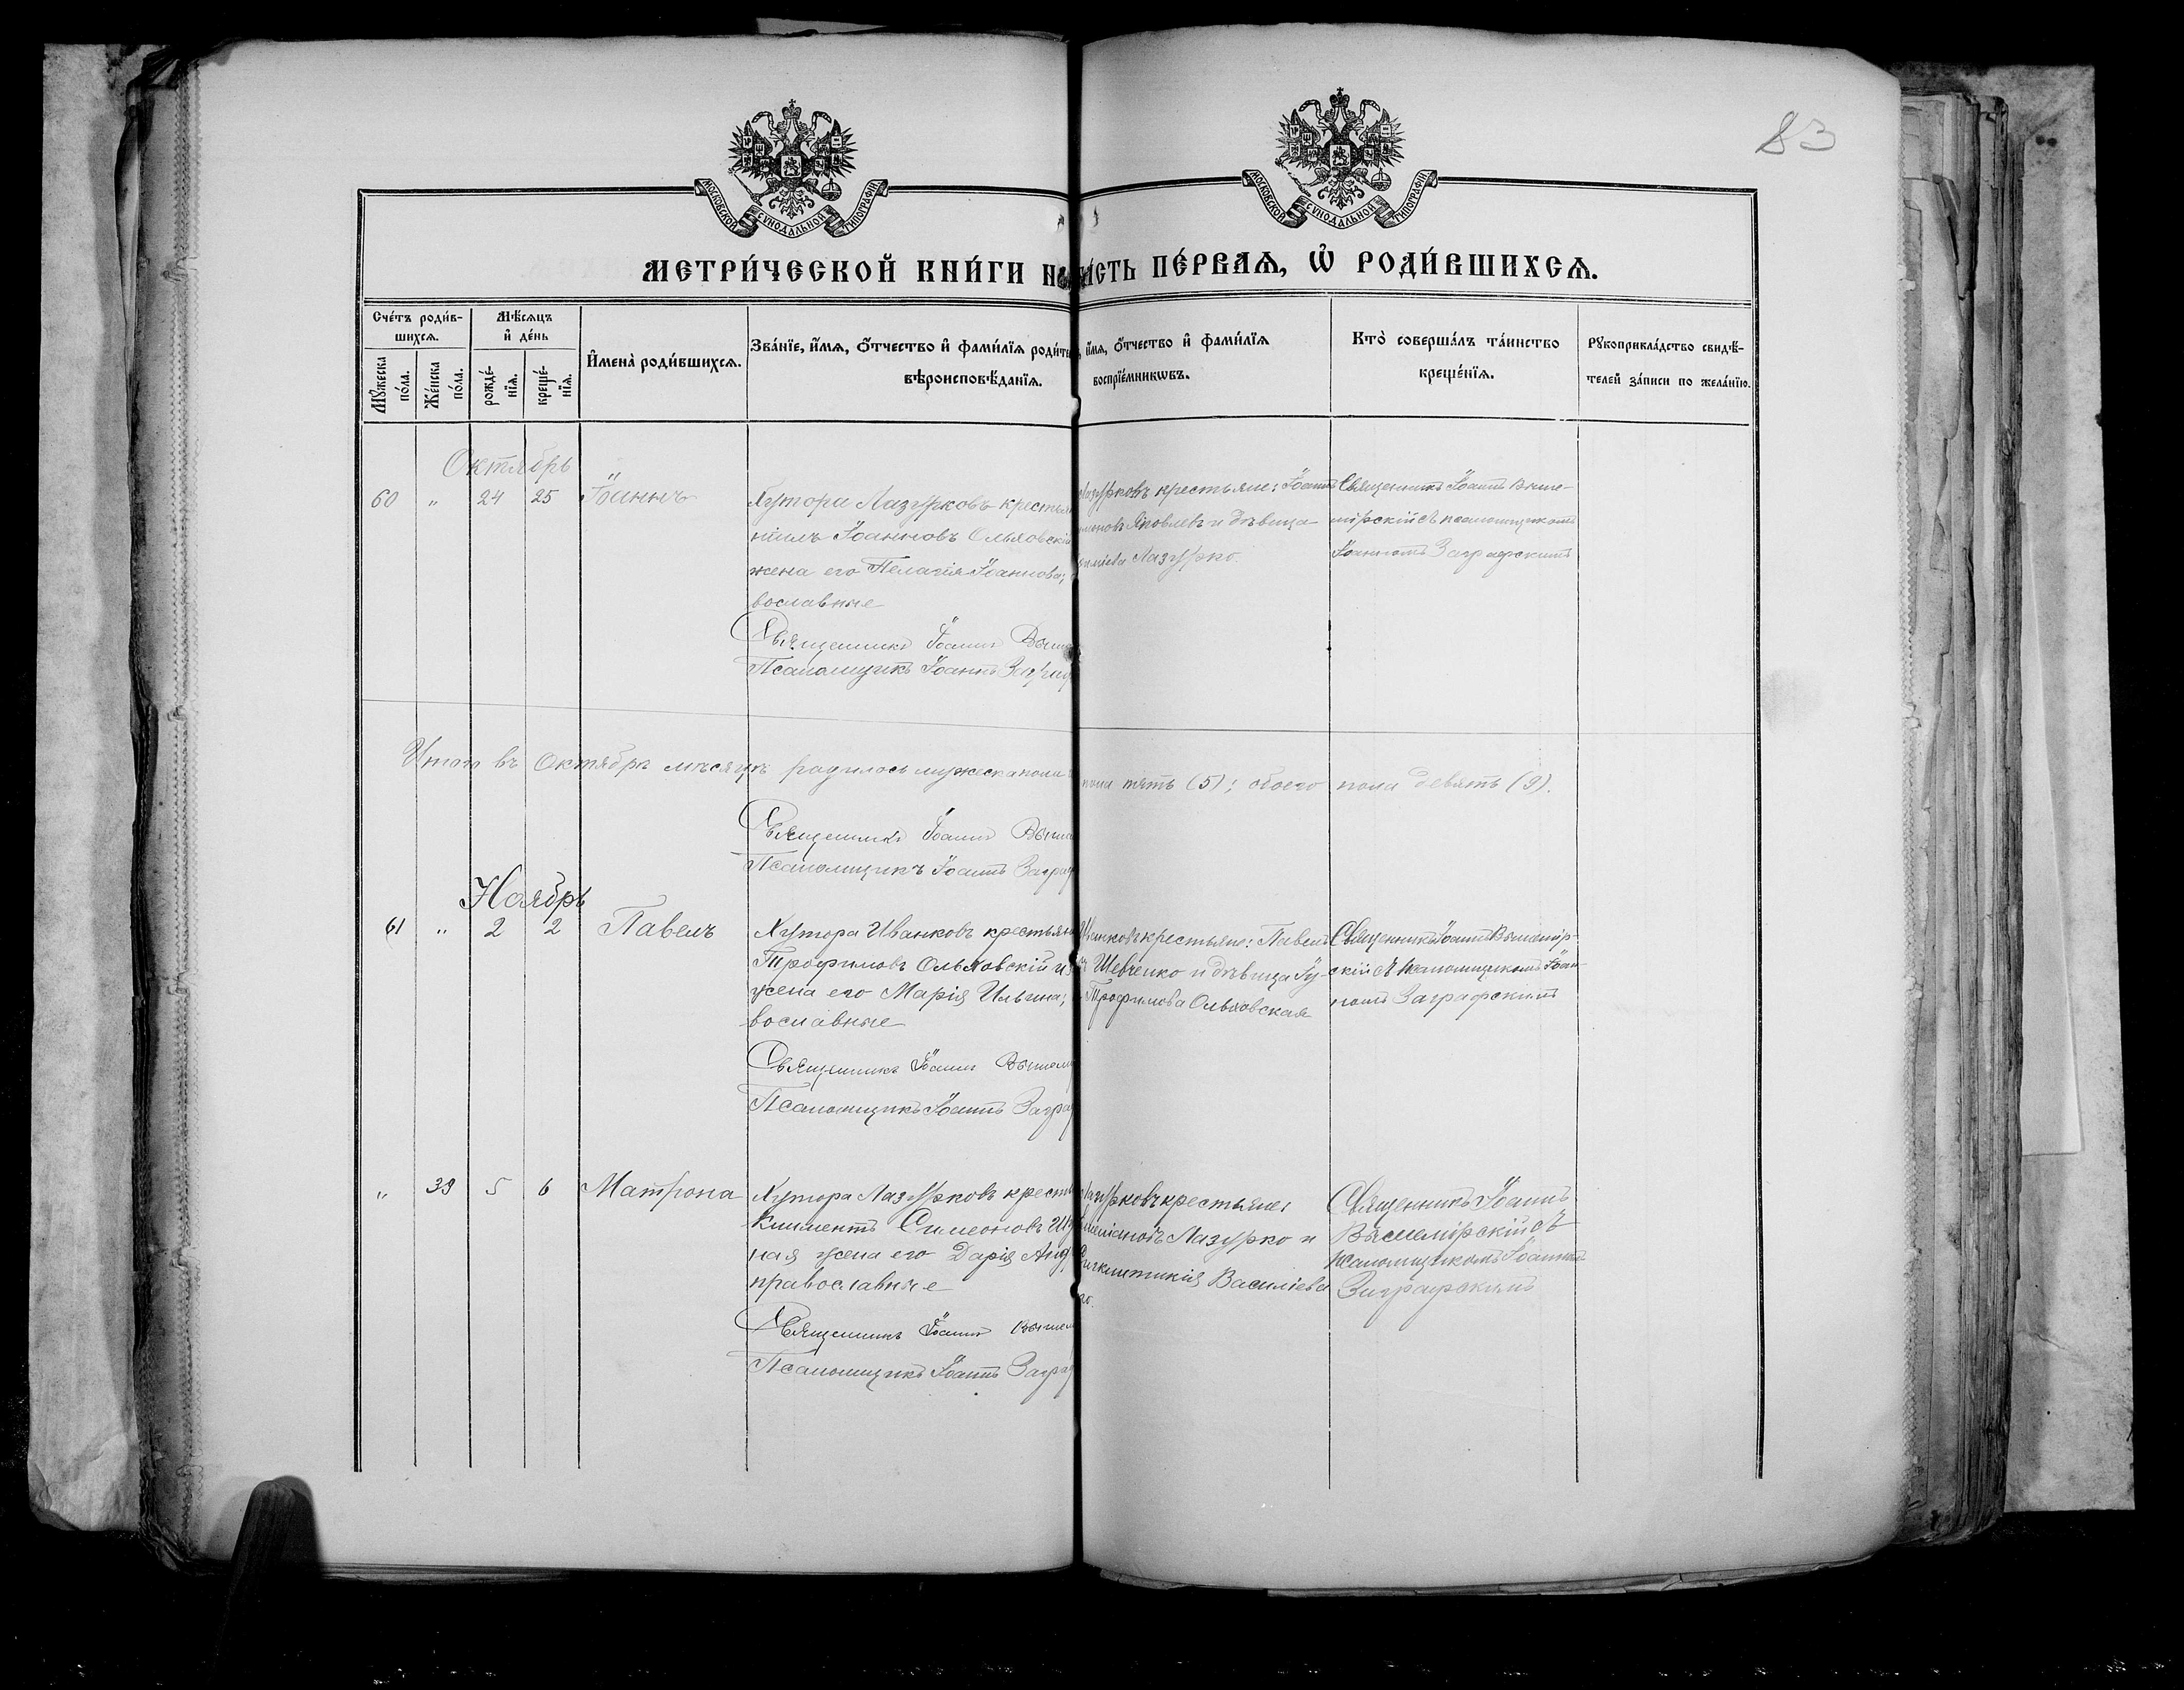 83
МОСКОВСКОЙ СѴНОДАЛЬНОЙ ТИПОГРАФІИ
МОСКОВСКОЙ СѴНОДАЛЬНОЙ ТИПОГРАФІИ
МЕТРИ́ЧЕСКОЙ КНИ́ГИ НА
ЧА́СТЬ ПЕ́РВАѦ, Ѡ҆ РОДИ́ВШИХСѦ.
Сче́тъ роди́в-
шихсѧ.
Мꙋ́жеска по́ла.
Же́нска по́ла.
Мѣ́сѧцъ
и҆ де́нь
рожде́-
нїѧ.
креще́-
нїѧ.
И҆мена̀ роди́вшихсѧ.
Зва́нїе, и҆́мѧ, ѻ҆́тчество и҆ фами́лїѧ роди́те
вѣроисповѣ́данїѧ.
и҆́мѧ, ѻ҆́тчество и҆ фами́лїѧ
воспрїе́мникѡвъ.
Кто̀ соверша́лъ та́инство
креще́нїѧ.
Рꙋкоприкла́дство свидѣ́-
телей за́писи по жела́нїю.
Октябрь
60 " 24 25 Іоаннъ
Хутора Лазурковъ крестьян
Іоанновъ Ольховскій
жена его Пелагія Іоаннова;
вославные
Священникъ Іоаннъ Выше
Псаломщикъ Іоаннъ Заграф
Лазурковъ крестьяне: Іоаннъ
Яковлевъ и дѣвица
Лазурко.
Священникъ Іоаннъ Выше-
мірскій съ псаломщикомъ
Іоанномъ Заграфскимъ
Итого въ Октябрѣ мѣсяцѣ родилось мужеска пола
пола пять (5); обоего пола девять (9).
Священникъ Іоаннъ Выше
Псаломщикъ Іоаннъ Заграф
Ноябрь
61 " 2 2 Павелъ
Хутора Иванковъ крестьян
Трофимовъ Ольховскій и з
жена его Марія Ильина;
вославные
Священникъ Іоаннъ Вышем
Псаломщикъ Іоаннъ Заграф
Иванковъ крестьяне: Павелъ
Шевченко и дѣвица Гу-
Трофимова Ольховская
Священникъ Іоаннъ Вышемір-
скій съ псаломщикомъ Іоан-
номъ Заграфскимъ
" 39 5 6 Матрона
Хутора Лазурковъ кресть
Климентъ Симеоновъ
ная жена его Дарія Анд
православные
Священникъ Іоаннъ Вышем
Псаломщикъ Іоаннъ Заграф
Лазурковъ крестьяне:
Лазурко и
Синклитикія Василіева
Священникъ Іоаннъ
Вышемірскій съ
псаломщикомъ Іоанномъ
Заграфскимъ